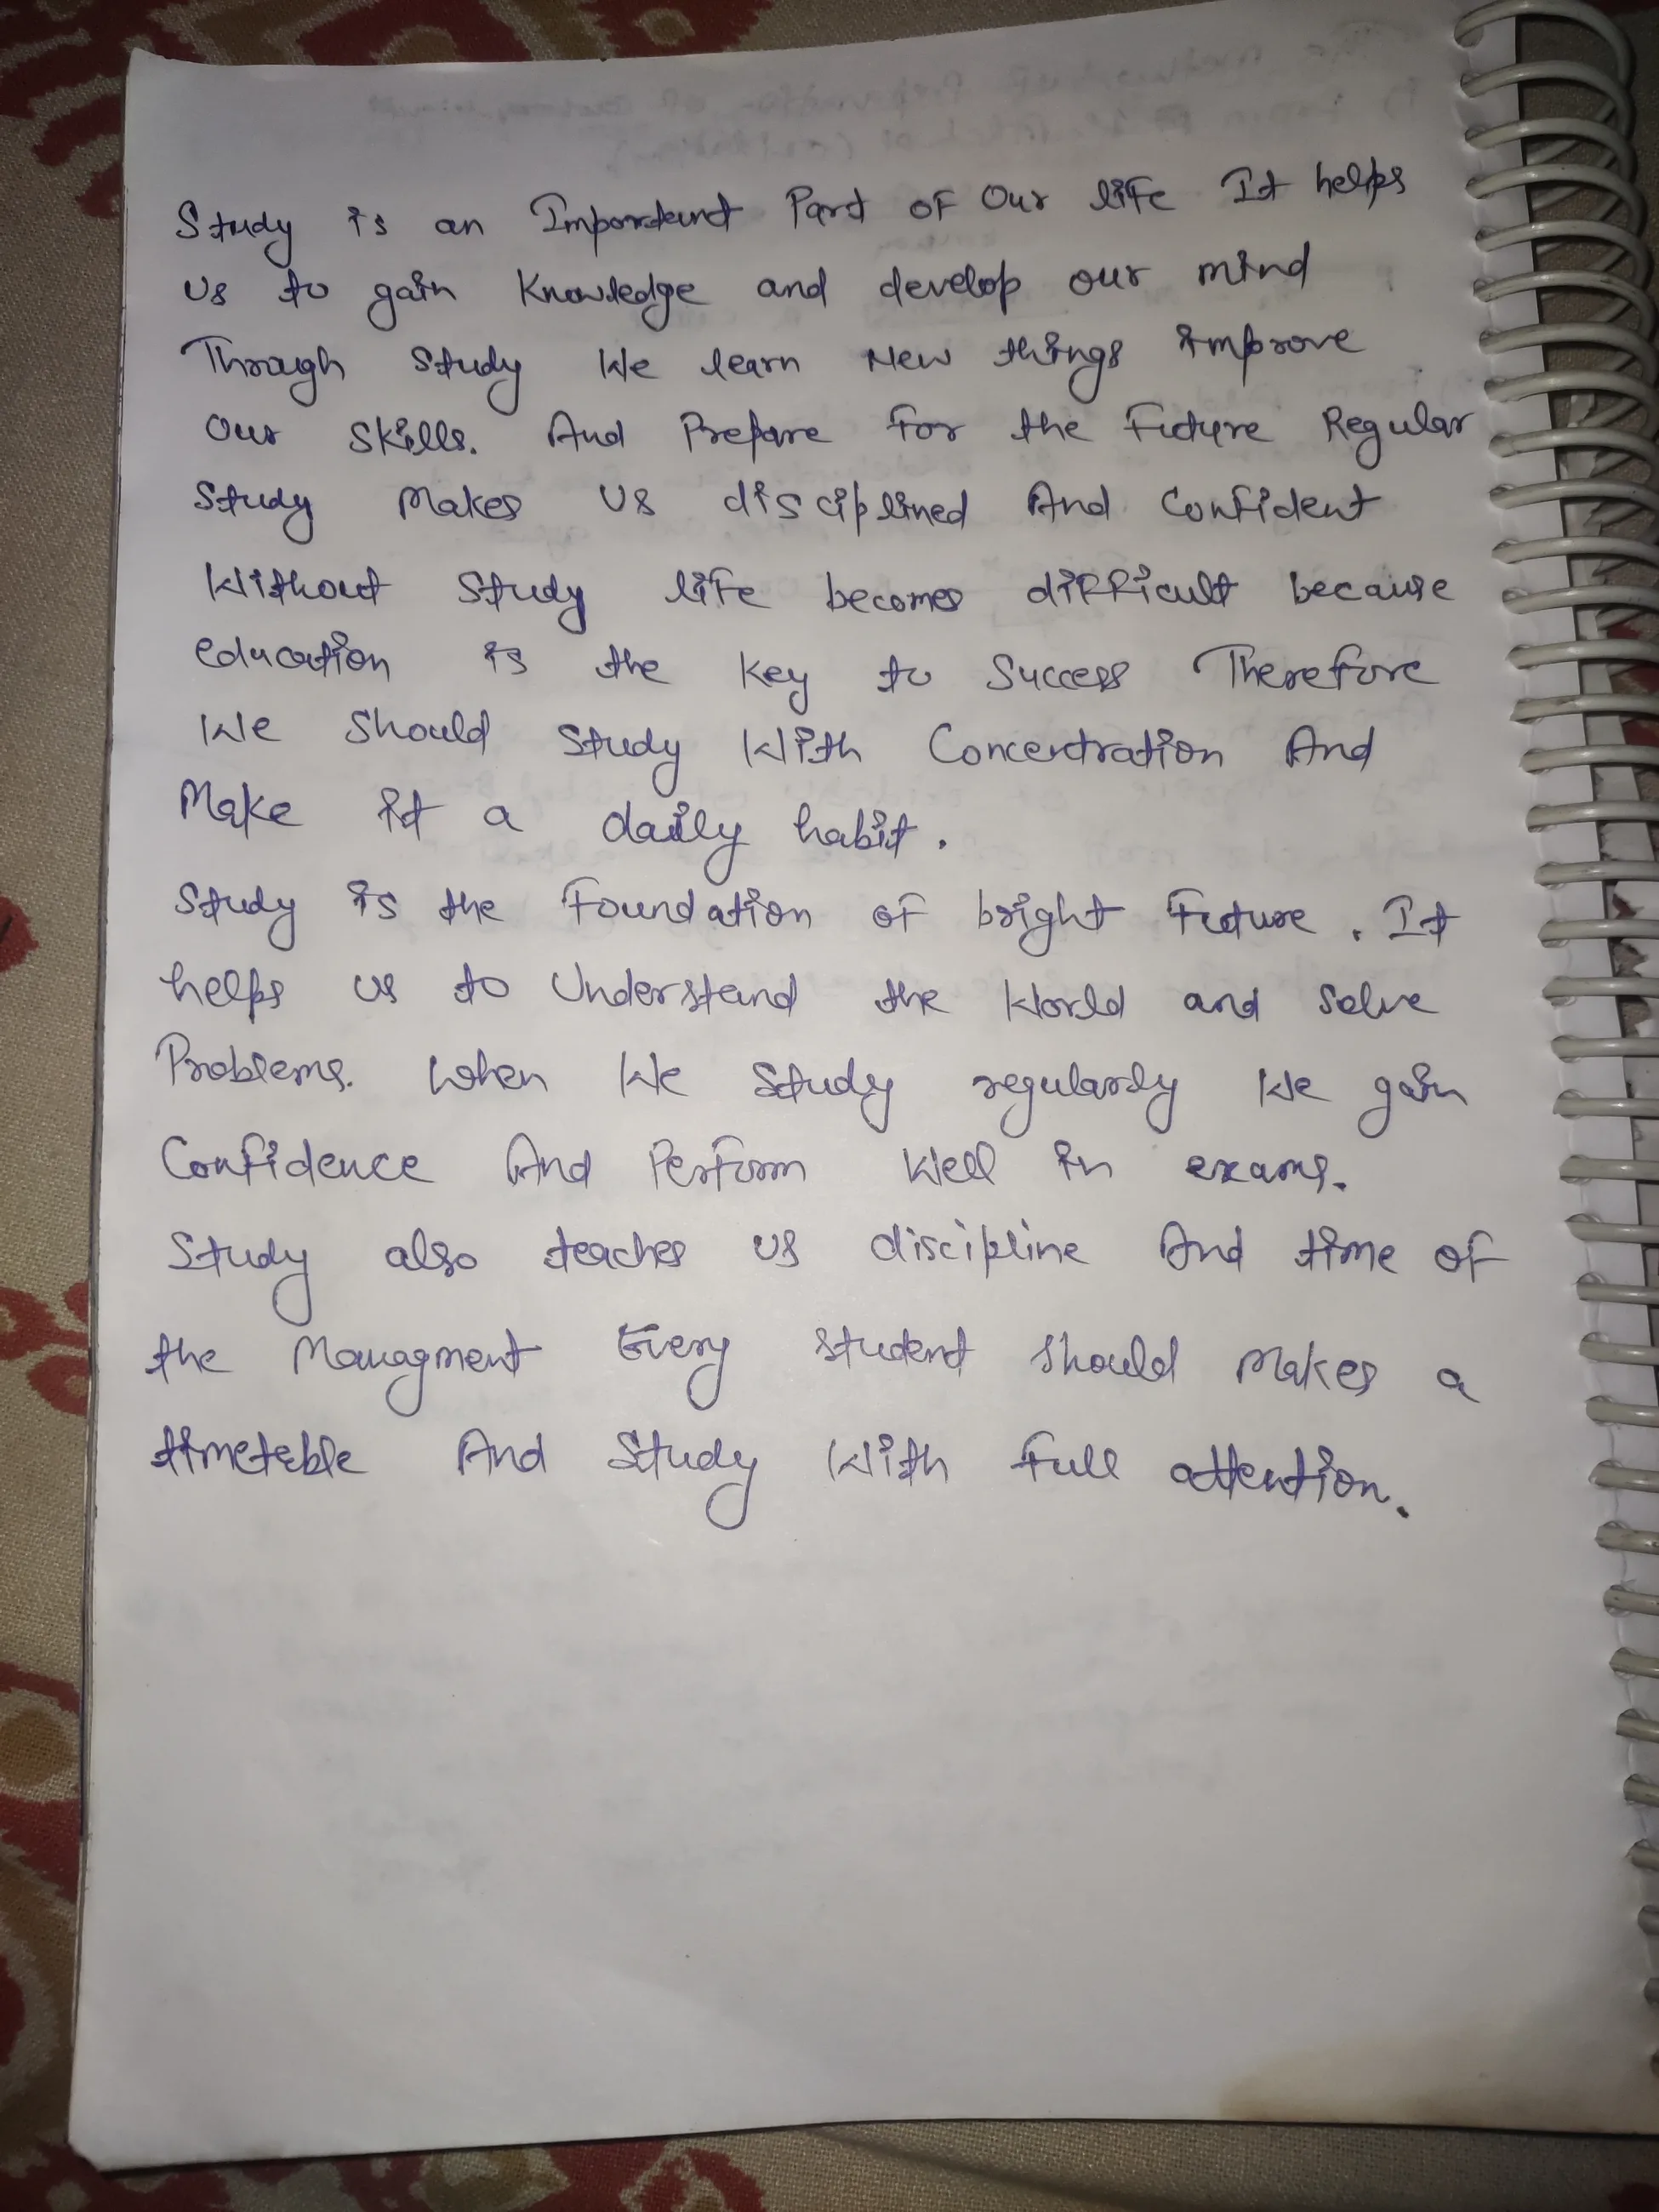 Study is an Important Part of Our life It helps
us to gain Knowledge and develop our mind
Through study We learn New things improve
Our skills. And Prepare For the Future Regular
Study Makes us disciplined And Confident
Without Study life becomes difficult because
education is the Key to Success Therefore
We Should Study With Concentration And
Make it a daily habit.
Study is the Foundation of bright Future. It
helps us to Understand the World and solve
Problems. When We Study regularly We gain
Confidence And Perform Well in exams.
Study also teaches us discipline And time of
the Managment Every student should Makes a
timeteble And Study With Full attention.